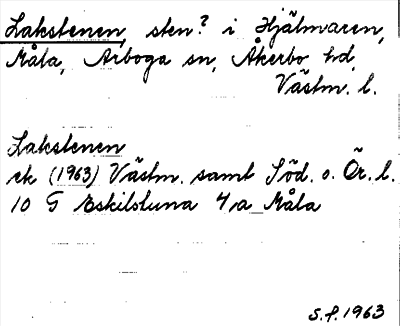 Lakstenen, sten? i Hjälmaren,
Måla, Arboga sn, Åkerbo hd,
Västm. l.
Lakstenen
ek (1963) Västm. samt Söd. o. Ör. l.
10 G Eskilstuna 4a Måla
S.f. 1963